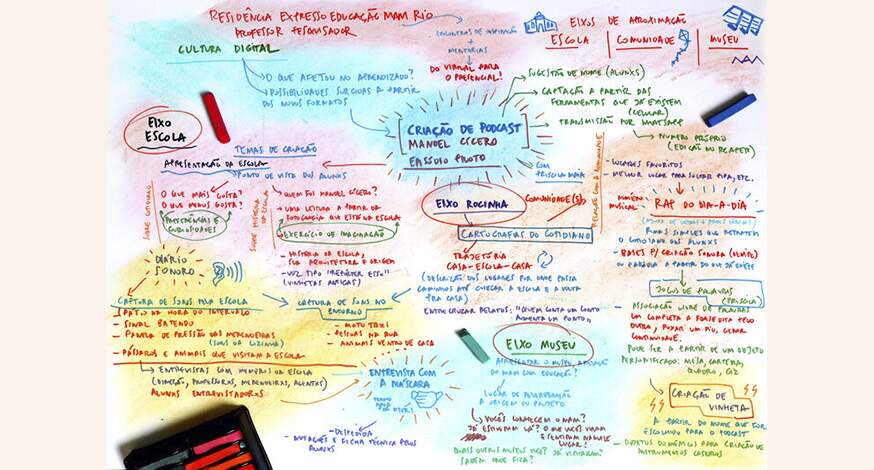 RESIDÊNCIA EXPRESSO EDUCAÇÃO MAM RIO
PROFESSOR PESQUISADOR
CULTURA DIGITAL
O QUE AFETOU NO APRENDIZADO?
POSSIBILIDADES SURGIDAS A PARTIR
DOS NOVOS FORMATOS
ENCONTROS DE INSPIRAÇÃO
+
MENTORIAS
DO VIRTUAL PARA O PRESENCIAL!
EIXOS DE APROXIMAÇÃO
ESCOLA COMUNIDADE MUSEU
SUGESTÃO DE NOME (ALUNXS)
CAPTAÇÃO A PARTIR DAS
FERRAMENTAS QUE JÁ EXISTEM
(CELULAR)
TRANSMISSÃO POR WHATSAPP
NÚMERO PRÓPRIO
(EDIÇÃO NO REAPER)
CRIAÇÃO DE PODCAST
MANOEL CÍCERO
EPISÓDIO PILOTO
COM
PRISCILA MAIA
EIXO
ESCOLA
TEMAS DE CRIAÇÃO
APRESENTAÇÃO DA ESCOLA
PONTO DE VISTA DOS ALUNXS
SOBRE COTIDIANO
O QUE MAIS GOSTA?
O QUE MENOS GOSTA?
PREFERÊNCIAS E
CURIOSIDADES
SOBRE HISTÓRIA DA ESCOLA
QUEM FOI MANUEL CÍCERO?
UMA LEITURA A PARTIR DA
FOTOGRAFIA QUE ESTÁ NA ESCOLA
EXERCÍCIO DE IMAGINAÇÃO
HISTÓRIA DA ESCOLA,
SUA ARQUITETURA E ORIGEM
VOZ TIPO "REPÓRTER ESSO"
(VINHETAS ANTIGAS)
DIÁRIO
SONORO
CAPTURA DE SONS PELA ESCOLA
PÁTIO NA HORA DO INTERVALO
SINAL BATENDO
PANELA DE PRESSÃO DAS MERENDEIRAS
(SONS DA COZINHA)
PÁSSAROS E ANIMAIS QUE VISITAM A ESCOLA
CAPTURA DE SONS NO
ENTORNO
MOTO TAXI
PESSOAS NA RUA
ANIMAIS DENTRO DE CASA
ENTREVISTAS COM MEMÓRIAS DA ESCOLA
(DIREÇÃO, PROFESSORXS, MERENDEIRAS, ALUNXS)
ALUNXS ENTREVISTADORXS
ENTREVISTA COM
A MÁSCARA
DESPEDIDA
E FICHA TÉCNICA PELOS
ALUNXS
EIXO ROCINHA
COMUNIDADE(S)
RELAÇÃO COM A COMUNIDADE
CARTOGRAFIAS DO COTIDIANO
TRAJETÓRIA
CASA-ESCOLA-CASA
(DESCRIÇÃO DOS LUGARES POR ONDE PASSA
CAMINHOS ATÉ CHEGAR A ESCOLA E A VOLTA
PRA CASA)
ENTRECRUZAR RELATOS: "QUEM CONTA UM CONTO
AUMENTA UM PONTO"
LUGARES FAVORITOS
MELHOR LUGAR PARA SOLTAR PIPA, ETC.
MUSICAL
RAP DO DIA-A-DIA
RIMAS SIMPLES QUE RETRATEM
O COTIDIANO DOS ALUNXS
BASES P/ CRIAÇÃO SONORA
OU PARÓDIA A PARTIR DO QUE JÁ EXISTE
JOGOS DE PALAVRAS
(PRISCILA)
ASSOCIAÇÃO LIVRE DE PALAVRAS
UM COMPLETA A FRASE DITA PELO
OUTRO, PUXAR UM FIO, GERAR
CONTINUIDADE.
PODE SER A PARTIR DE UM OBJETO
PERSONIFICADO: MESA, CARTEIRA,
QUADRO, GIZ
CRIAÇÃO DE
VINHETA
A PARTIR DO NOME QUE FOR
ESCOLHIDO PARA O PODCAST
OBJETOS DOMÉSTICOS PARA CRIAÇÃO DE
INSTRUMENTOS CASEIROS
EIXO MUSEU
APRESENTAR O MUSEU,
DO MAM COM EDUCAÇÃO?
LUGAR DE
A ORIGEM DO PROJETO
VOCÊS CONHECEM O MAM?
JÁ ESTIVERAM LÁ? O QUE VIRAM
E SENTIRAM NAQUELE
LUGAR?
QUAIS OUTROS MUSEUS VCS JÁ VISITARAM?
SABEM ONDE FICA?